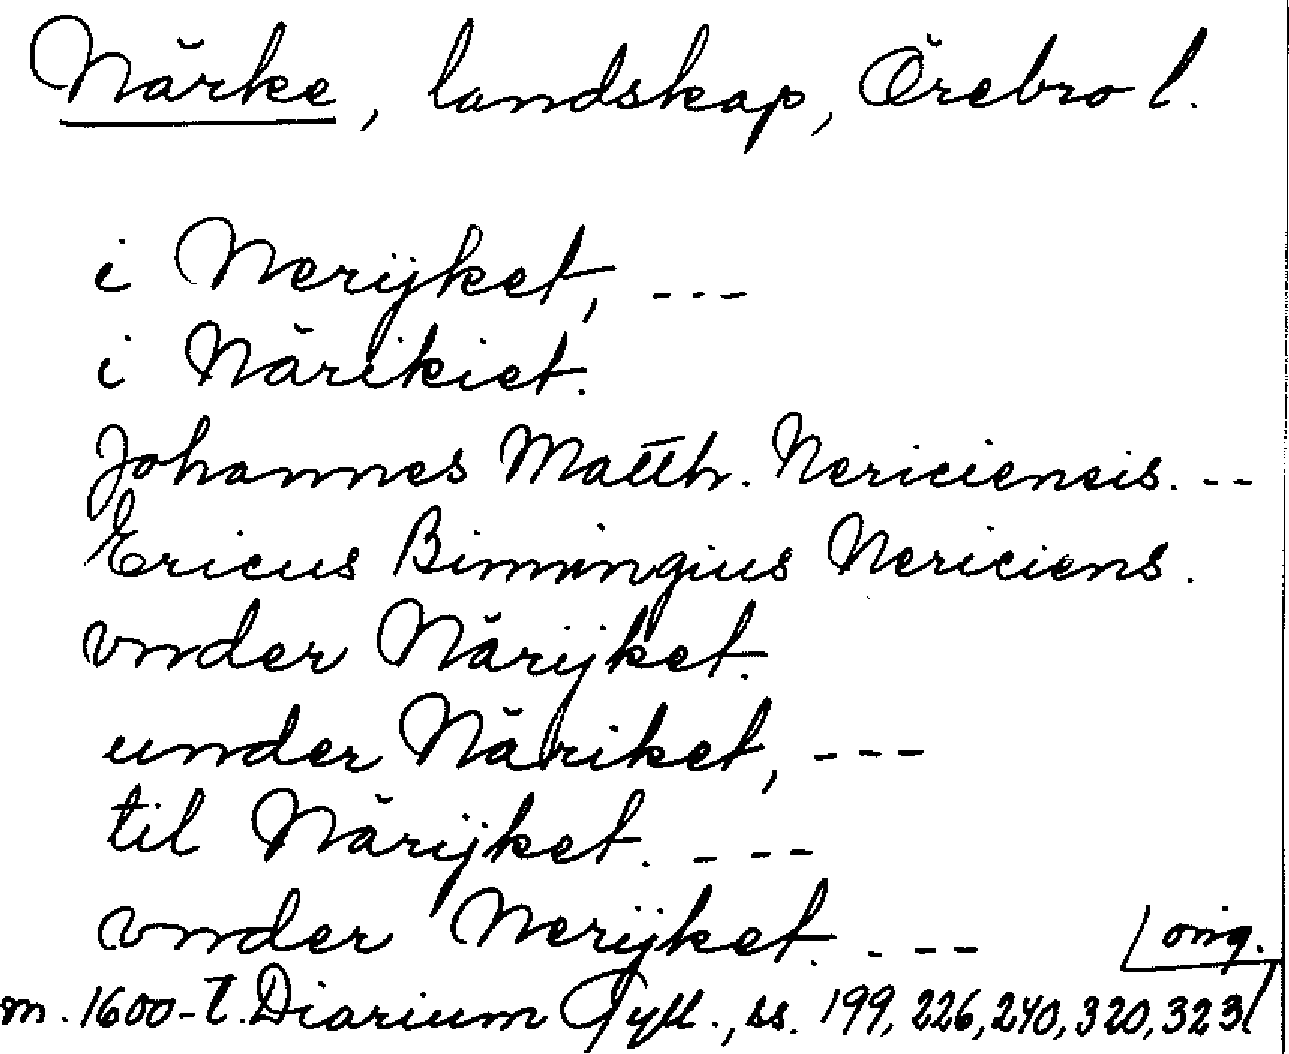 Närke, landskap, Örebro l.
i Nerijket, ---
i Närikiet.
Johannes Matth. Nericiensis. --
Ericus Bimningius Nericiens.
vnder Närijket.
under Näriket, ---
til Närijket. ---
vnder Nerijket. ---
orig.
m. 1600-t. Diarium Gyll., ss. 199, 226, 240, 320, 323